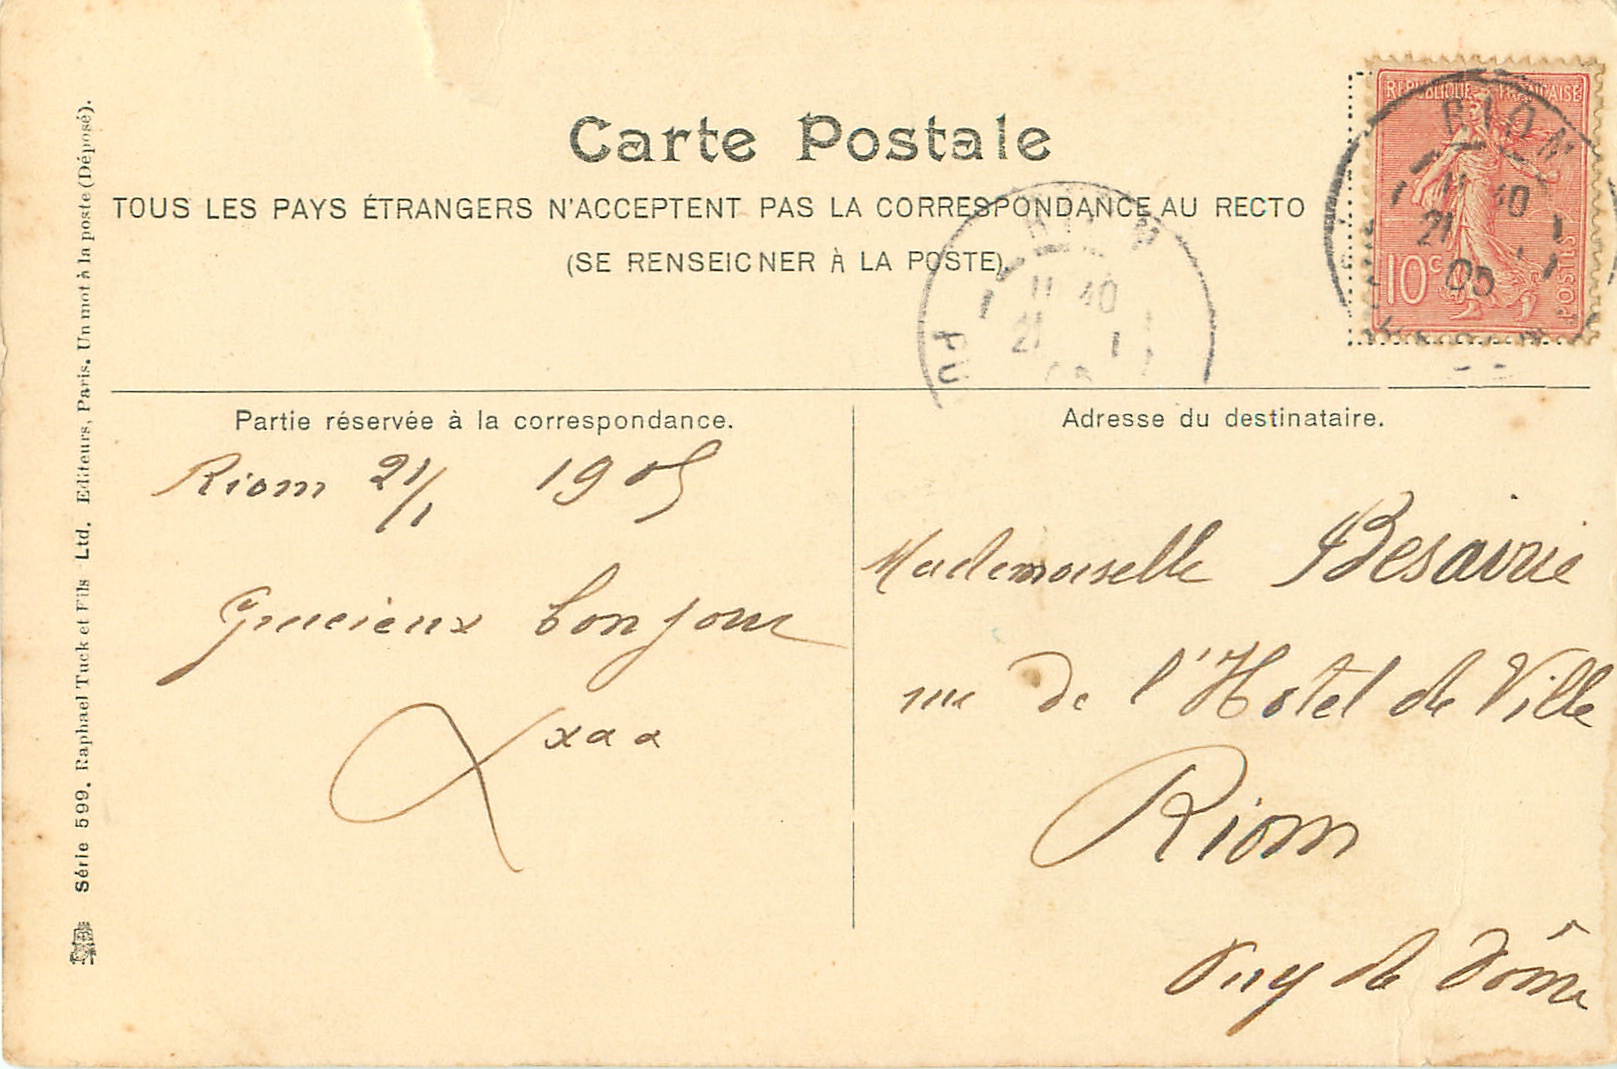 Carte Postale
TOUS LES PAYS ÉTRANGERS N'ACCEPTENT PAS LA CORRESPONDANCE AU RECTO
(SE RENSEIGNER À LA POSTE)
REPUBLIQUE FRANÇAISE
10c
POSTES
RIOM
11 40
21 1
05
11 40
21 1
PU
Partie réservée à la correspondance.
Riom 21/1 1905
Gracieux bonjour
Adresse du destinataire.
Mademoiselle Besairie
rue de l'Hotel de Ville
Riom
Puy de Dôme
Série 599. Raphael Tuck et Fils Ltd. Editeurs, Paris. Un mot à la poste (Déposé).